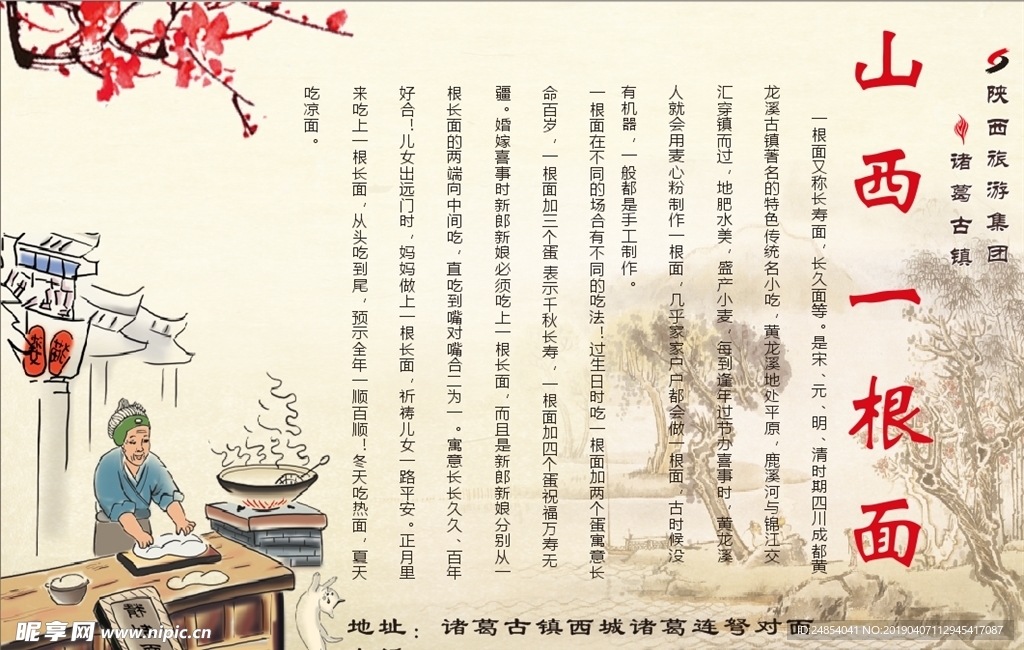 陕西旅游集团
诸葛古镇
山西一根面
一根面又称长寿面，长久面等。是宋、元、明、清时期四川成都黄
龙溪古镇著名的特色传统名小吃，黄龙溪地处平原，鹿溪河与锦江交
汇穿镇而过，地肥水美，盛产小麦，每到逢年过节办喜事时，黄龙溪
人就会用麦心粉制作一根面，几乎家家户户都会做一根面，古时候没
有机器，一般都是手工制作。
一根面在不同的场合有不同的吃法！过生日时吃一根面加两个蛋寓意长
命百岁，一根面加三个蛋 表示千秋长寿，一根面加四个蛋祝福万寿无
疆。婚嫁喜事时新郎新娘必须吃上一根长面，而且是新郎新娘分别从一
根长面的两端向中间吃，直吃到嘴对嘴合二为一。寓意长长久久、百年
好合！儿女出远门时，妈妈做上一根长面，祈祷儿女一路平安。正月里
来吃上一根长面，从头吃到尾，预示全年一顺百顺！冬天吃热面，夏天
吃凉面。
地址：诸葛古镇西城诸葛连弩对面
昵享网 www.nipic.cn
ID:24854041 NO:20190407112945417087